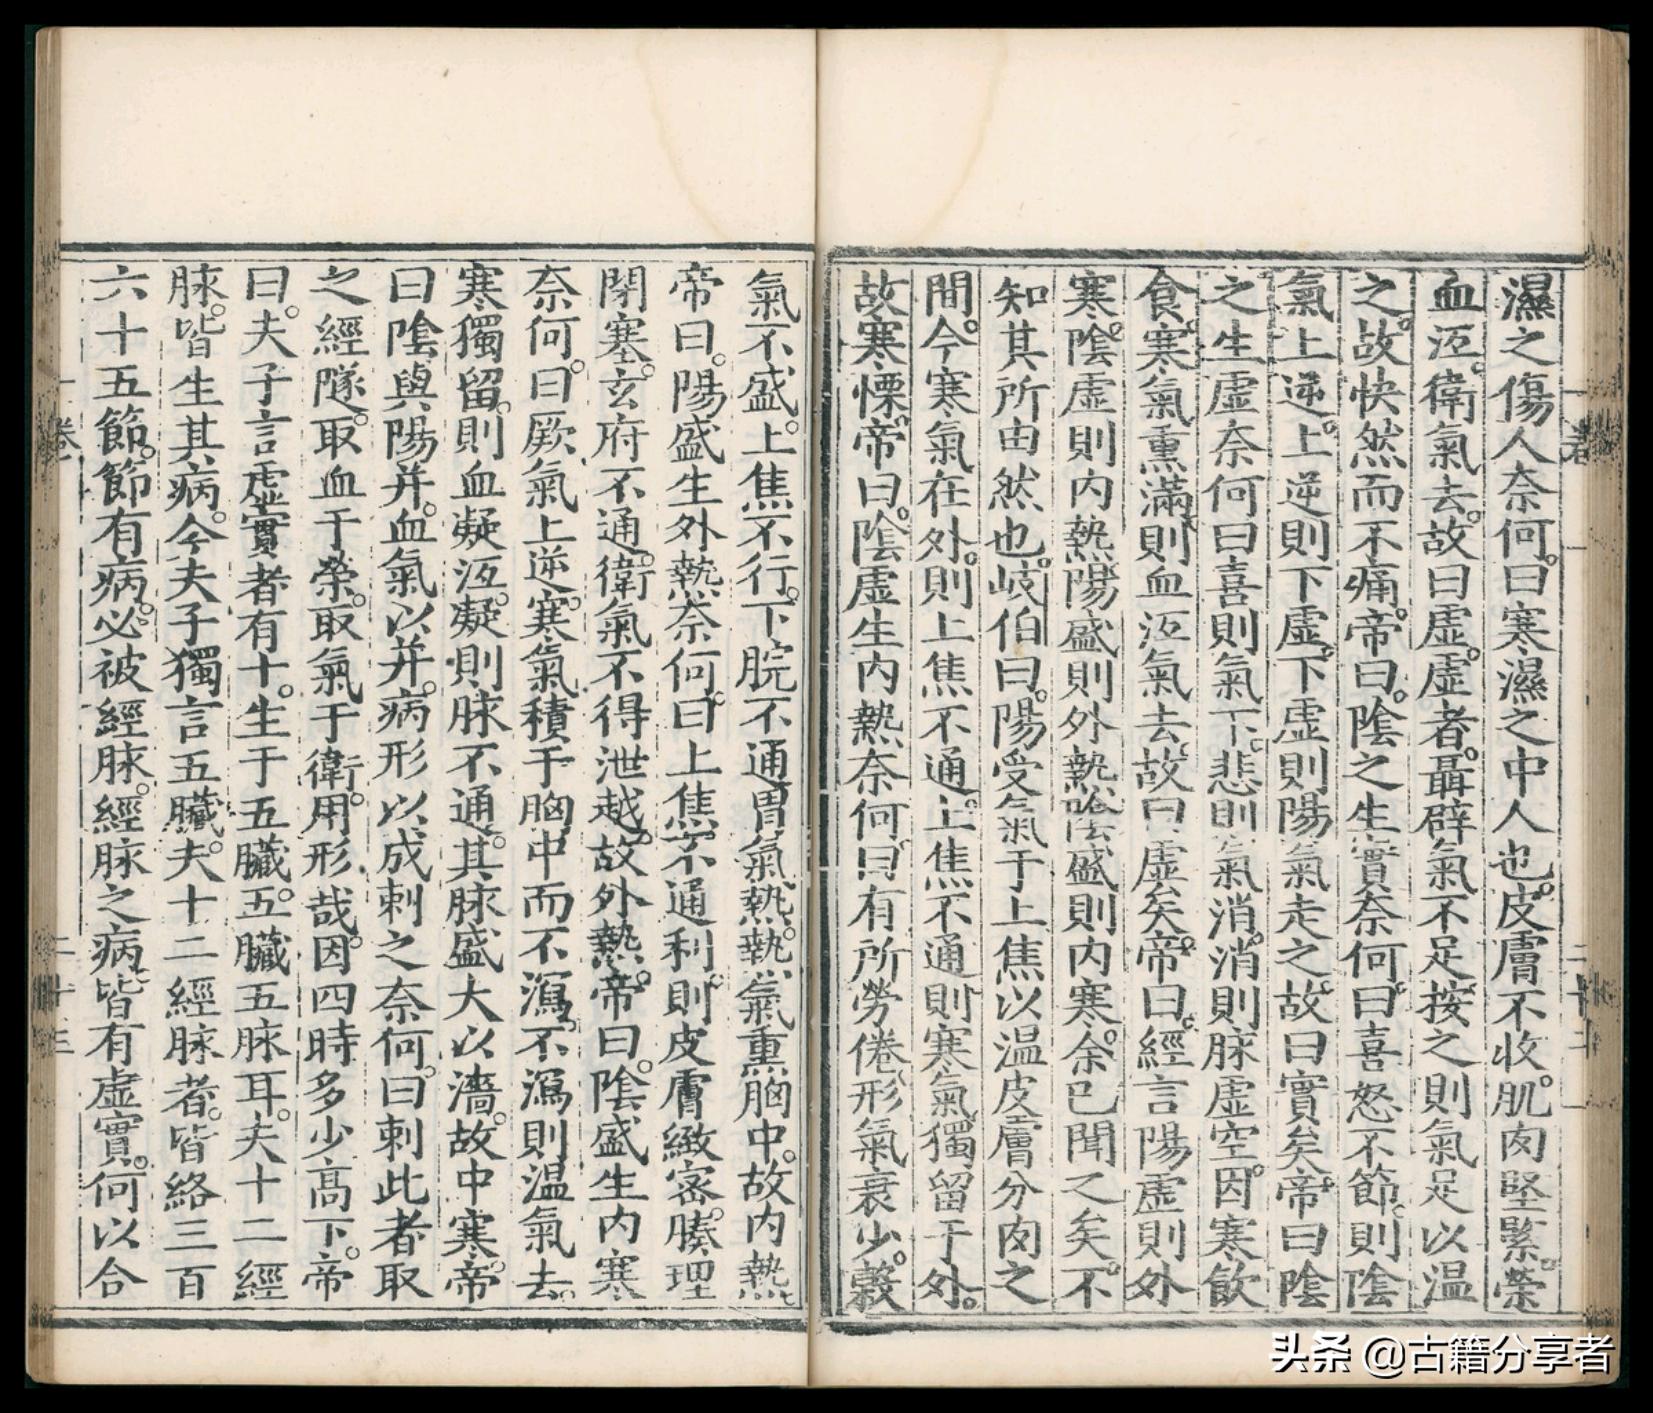 濕之傷人奈何。曰寒濕之中人也。皮膚不收。肌肉堅緊。榮
血沍。衛氣去。故曰虛。虛者。聶辟氣不足。按之則氣足以温
之。故快然而不痛。帝曰。陰之生實奈何。曰喜怒不節。則陰
氣上逆。上逆則下虛。下虛則陽氣走之。故曰實矣。帝曰陰
之生虛奈何曰喜則氣下。悲則氣消。消則脉虛空。因寒飲
食。寒氣熏滿。則血沍氣去。故曰虛矣。帝曰。經言陽虛則外
寒。陰虛則内熱。陽盛則外熱。陰盛則内寒。余已聞之矣。不
知其所由然也。岐伯曰。陽受氣于上焦以温皮膚分肉之
間。今寒氣在外。則上焦不通。上焦不通則寒氣獨留于外。
故寒慄。帝曰。陰虛生内熱奈何。曰有所勞倦。形氣衰少。穀
氣不盛。上焦不行。下脘不通。胃氣熱。熱氣熏胸中。故内熱。
帝曰。陽盛生外熱奈何。曰上焦不通利。則皮膚緻密。腠理
閉塞。玄府不通。衛氣不得泄越。故外熱。帝曰。陰盛生内寒
奈何。曰厥氣上逆。寒氣積于胸中而不瀉。不瀉則温氣去。
寒獨留。則血凝沍。凝則脉不通。其脉盛大以濇。故中寒。帝
曰陰與陽并。血氣以并。病形以成刺之奈何。曰刺此者取
之經隧。取血于榮。取氣于衛。用形哉。因四時多少高下。帝
曰。夫子言虛實者有十。生于五臟。五臟五脉耳。夫十二經
脉。皆生其病。今夫子獨言五臟。夫十二經脉者。皆絡三百
六十五節。節有病。必被經脉。經脉之病。皆有虛實。何以合
卷一
二十三
头条 @古籍分享者